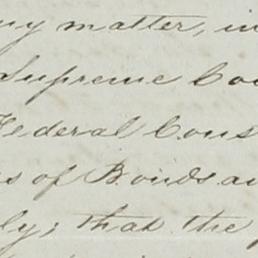 ny matter, in
Supreme Cou
Federal Cons
s of Bonds an
ly; that the